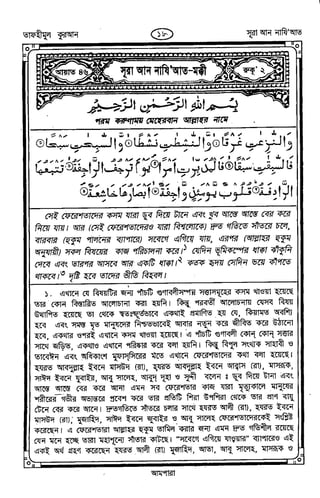 তাফহীমুল কুরআন
১৮
সূরা আন নাযি'আত
আয়াত ৪৬
সূরা আন নাযি'আত-মক্কী
রুকূ' ২
بِسْمِ اللهِ الرَّحْمٰنِ الرَّحِيْمِ
পরম করুণাময় মেহেরবান আল্লাহর নামে
وَالنّٰزِعٰتِ غَرْقًا ۙ وَّالنّٰشِطٰتِ نَشْطًا ۙ وَّالسّٰبِحٰتِ سَبْحًا ۙ
فَالسّٰبِقٰتِ سَبْقًا ۙ فَالْمُدَبِّرٰتِ اَمْرًا ۘ يَوْمَ تَرْجُفُ الرَّاجِفَةُ ۙ تَتْبَعُهَا
الرَّادِفَةُ ؕ قُلُوْبٌ يَّوْمَئِذٍ وَّاجِفَةٌ ۙ اَبْصَارُهَا خَاشِعَةٌ ۘ
সেই ফেরেশতাদের কসম যারা ডুব দিয়ে টানে এবং খুব আস্তে আস্তে বের করে
নিয়ে যায়। আর (সেই ফেরেশতাদেরও যারা বিশ্বলোকে) দ্রুত গতিতে সাঁতরে চলে,
বারবার (হুকুম পালনের ব্যাপারে) সবেগে এগিয়ে যায়, এরপর (আল্লাহর হুকুম
অনুযায়ী) সকল বিষয়ের কাজ পরিচালনা করে।১ যেদিন ভূমিকম্পের ধাক্কা ঝাঁকুনি
দেবে এবং তারপর আসবে আর একটি ধাক্কা।২ কতক হৃদয় সেদিন ভয়ে কাঁপতে
থাকবে।৩ দৃষ্টি হবে তাদের ভীতি বিহবল।
১. এখানে যে বিষয়টির জন্য পাঁচটি গুণাবলীসম্পন্ন সত্তাসমূহের কসম খাওয়া হয়েছে
তার কোন বিস্তারিত আলোচনা করা হয়নি। কিন্তু পরবর্তী আলোচনায় যেসব বিষয়
উত্থাপিত হয়েছে তা থেকে স্বতঃস্ফূর্তভাবে একথাই প্রমাণিত হয় যে, কিয়ামত অবশ্যি
হবে এবং সমস্ত মৃত মানুষদের নিশ্চিতভাবেই আবার নতুন করে জীবিত করে উঠানো
হবে, একথার ওপরই এখানে কসম খাওয়া হয়েছে। এ পাঁচটি গুণাবলী কোন্ কোন্ সত্তার
সাথে জড়িত, একথাও এখানে পরিষ্কার করে বলা হয়নি। কিন্তু বিপুল সংখ্যক সাহাবী ও
তাবেঈন এবং অধিকাংশ মুফাস্‌সিরের মতে এখানে ফেরেশতাদের কথা বলা হয়েছে।
হযরত আবদুল্লাহ ইবনে মাসউদ (রা), হযরত আবদুল্লাহ ইবনে আব্বাস (রা), মাসরূক,
সাঈদ ইবনে জুবাইর, আবু সালেহ, আবুদ্ দুহা ও সুদ্দী বলেন ঃ ডুব দিয়ে টানা এবং
আস্তে আস্তে বের করে আনা এমন সব ফেরেশতার কাজ যারা মৃত্যুকালে মানুষের
শরীরের গভীর অভ্যন্তরে প্রবেশ করে তার প্রতিটি শিরা উপশিরা থেকে তার প্রাণ বায়ু
টেনে বের করে আনে। দ্রুতগতিতে সাঁতরে চলার সাথে হযরত আলী (রা), হযরত ইবনে
মাসউদ (রা), মুজাহিদ, সাঈদ ইবনে জুবাইর ও আবু সালেহ ফেরেশতাদেরকেই সংশ্লিষ্ট
করেছেন। এ ফেরেশতারা আল্লাহর হুকুম তামিল করার জন্য এমন দ্রুত গতিশীল রয়েছে
যেন মনে হচ্ছে তারা মহাশূন্যে সাঁতার কাটছে। "সবেগে এগিয়ে যাওয়ার" ব্যাপারেও এই
একই অর্থ গ্রহণ করেছেন হযরত আলী (রা) মুজাহিদ, আতা, আবু সালেহ, মাসরূক ও
আমপারা